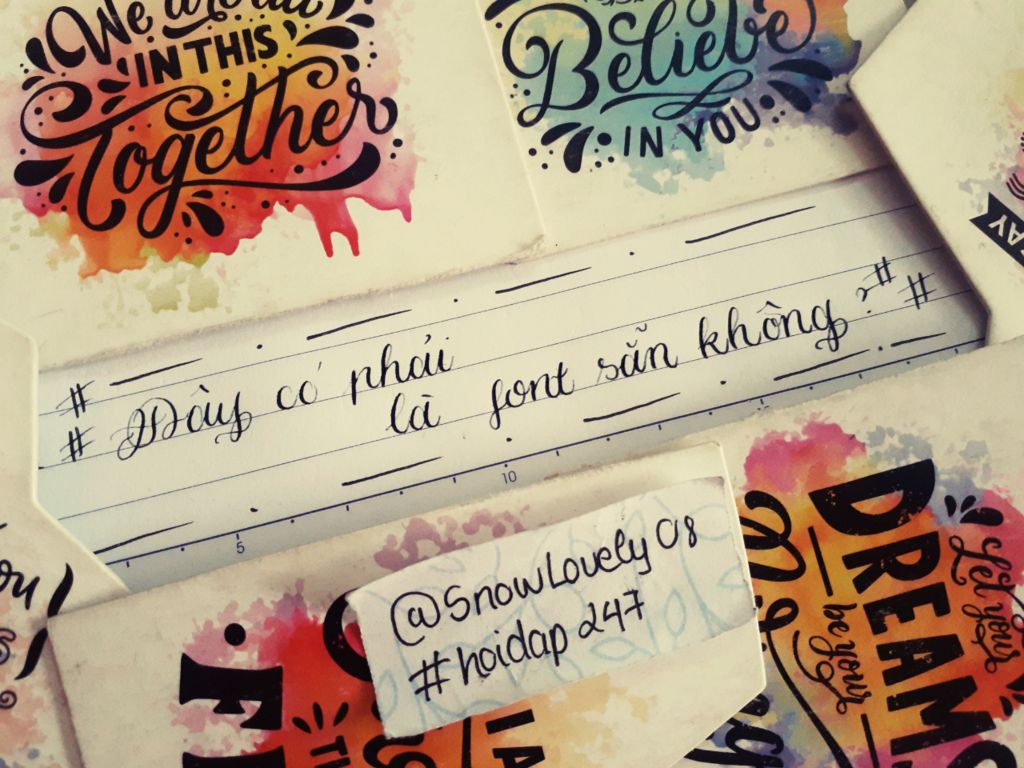 We are all
IN THIS
Together
Believe
IN YOU
# Đây có phải
# là font sẵn không ? #
#
5
10
@SnowLovely 08
#hoidap 247
DREAMS
Let your
be your